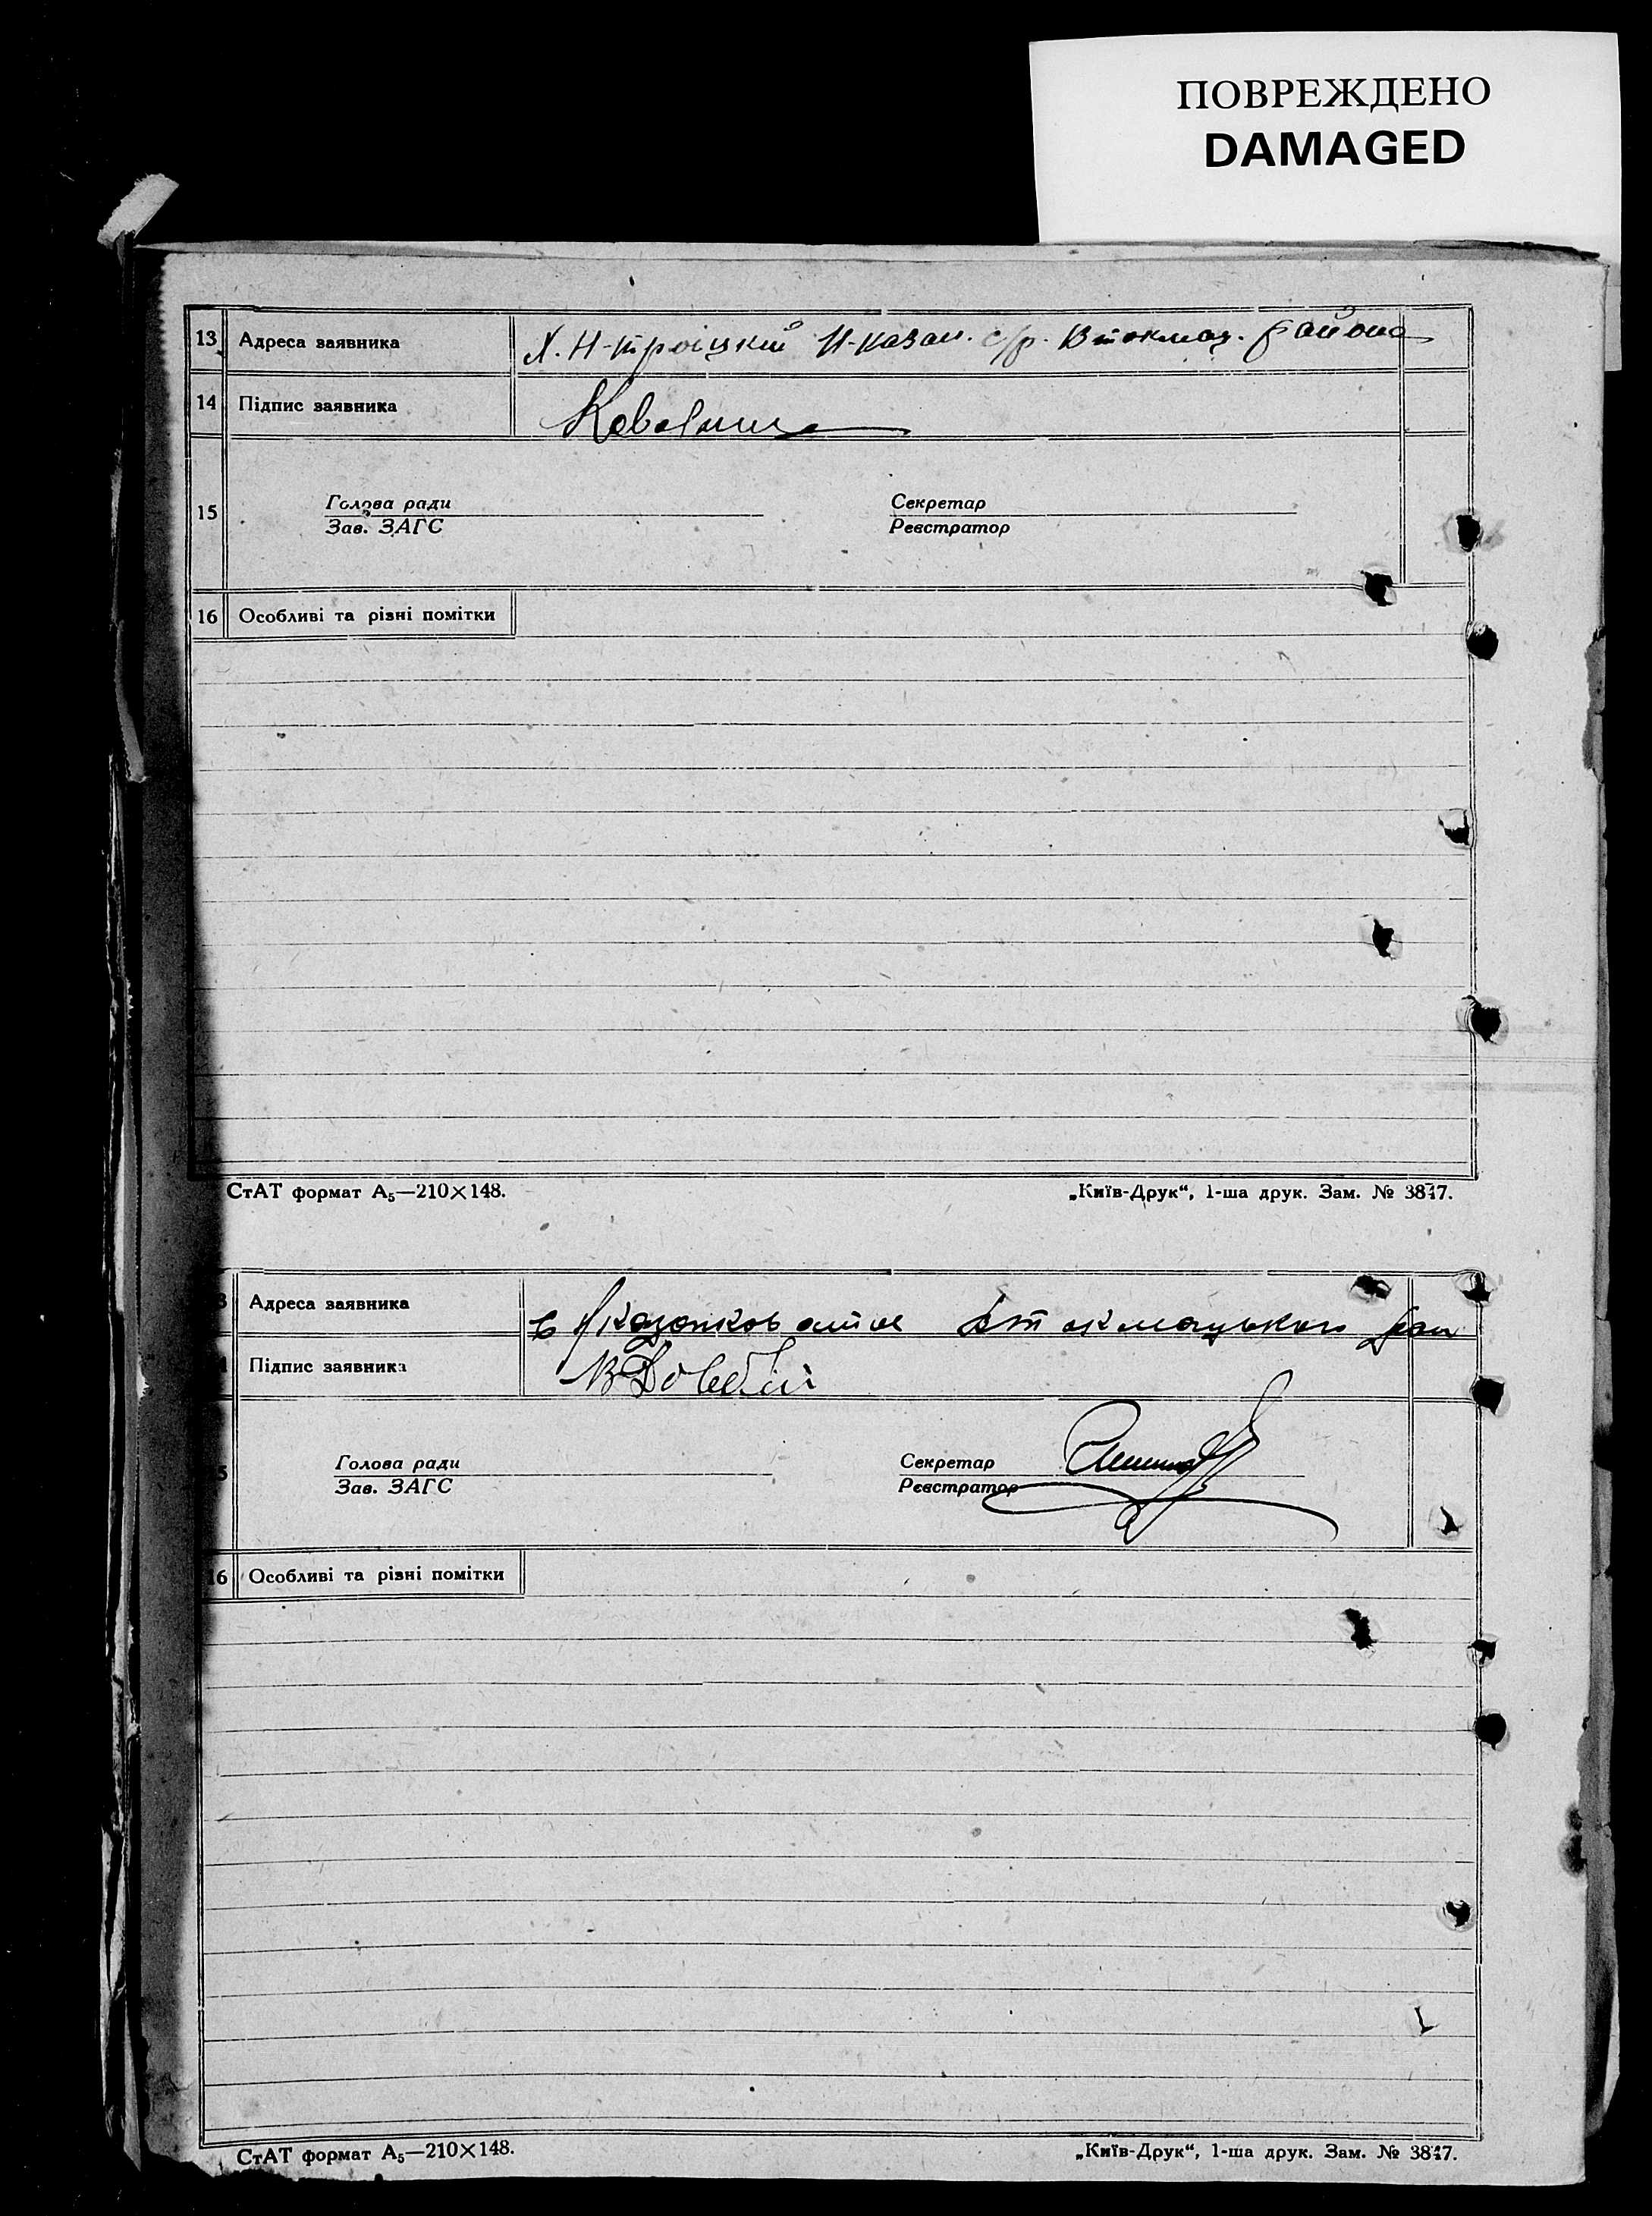 ПОВРЕЖДЕНО
DAMAGED
13 Адреса заявника Х. Н-троіцкий Н-казан. с/р. Втокмац. района
14 Підпис заявника
15 Голова ради Секретар
Зав. ЗАГС Реєстратор
16 Особливі та різні помітки
СтАТ формат А₅—210×148. „Київ-Друк“, 1-ша друк. Зам. № 3847.
3 Адреса заявника
Підпис заявника
5 Голова ради Секретар
Зав. ЗАГС Реєстратор
16 Особливі та різні помітки
СтАТ формат А₅—210×148. „Київ-Друк“, 1-ша друк. Зам. № 3847.